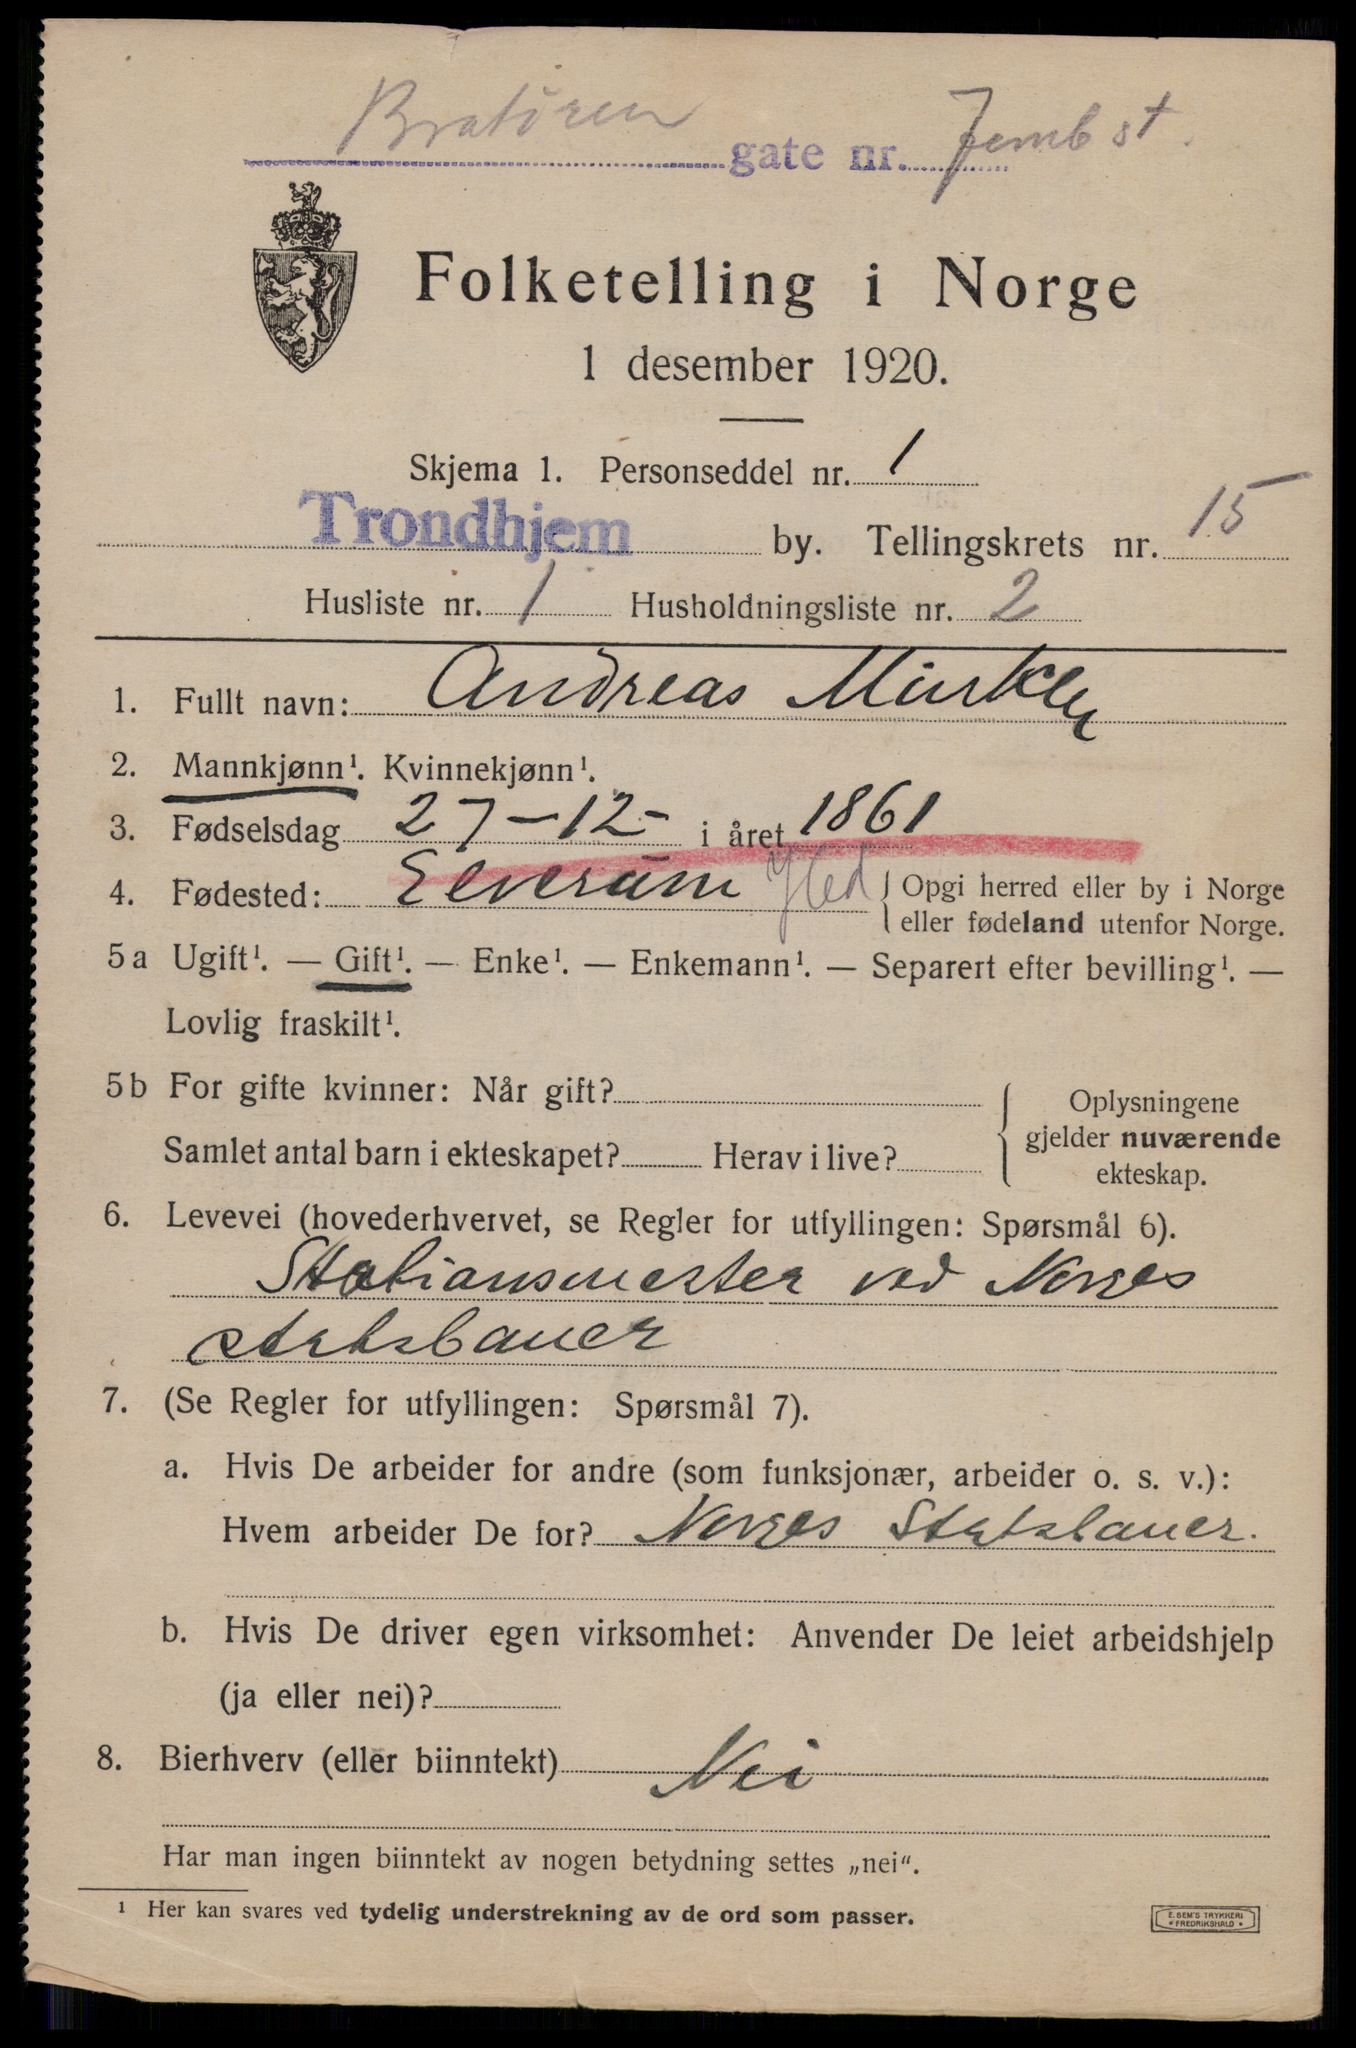 Bratøren gate nr. Jernb st.
Folketelling i Norge
1 desember 1920.
Skjema 1. Personseddel nr. 1
Trondhjem by. Tellingskrets nr. 15
Husliste nr. 1 Husholdningsliste nr. 2
1. Fullt navn: Andreas
2. Mannkjønn¹. Kvinnekjønn¹.
3. Fødselsdag 27-12- i året 1861
4. Fødested: Elverum Hed { Opgi herred eller by i Norge
eller fødeland utenfor Norge.
5a Ugift¹. — Gift¹. — Enke¹. — Enkemann¹. — Separert efter bevilling¹. —
Lovlig fraskilt¹.
5b For gifte kvinner: Når gift?
Samlet antal barn i ekteskapet? Herav i live?
{ Oplysningene
gjelder nuværende
ekteskap.
6. Levevei (hovederhvervet, se Regler for utfyllingen: Spørsmål 6).
Stationsmester ved Norges
statsbaner
7. (Se Regler for utfyllingen: Spørsmål 7).
a. Hvis De arbeider for andre (som funksjonær, arbeider o. s. v.):
Hvem arbeider De for? Norges Statsbaner.
b. Hvis De driver egen virksomhet: Anvender De leiet arbeidshjelp
(ja eller nei)?
8. Bierhverv (eller biinntekt) Nei
Har man ingen biinntekt av nogen betydning settes „nei".
¹ Her kan svares ved tydelig understrekning av de ord som passer.
E. SEM'S TRYKKERI
* FREDRIKSHALD *